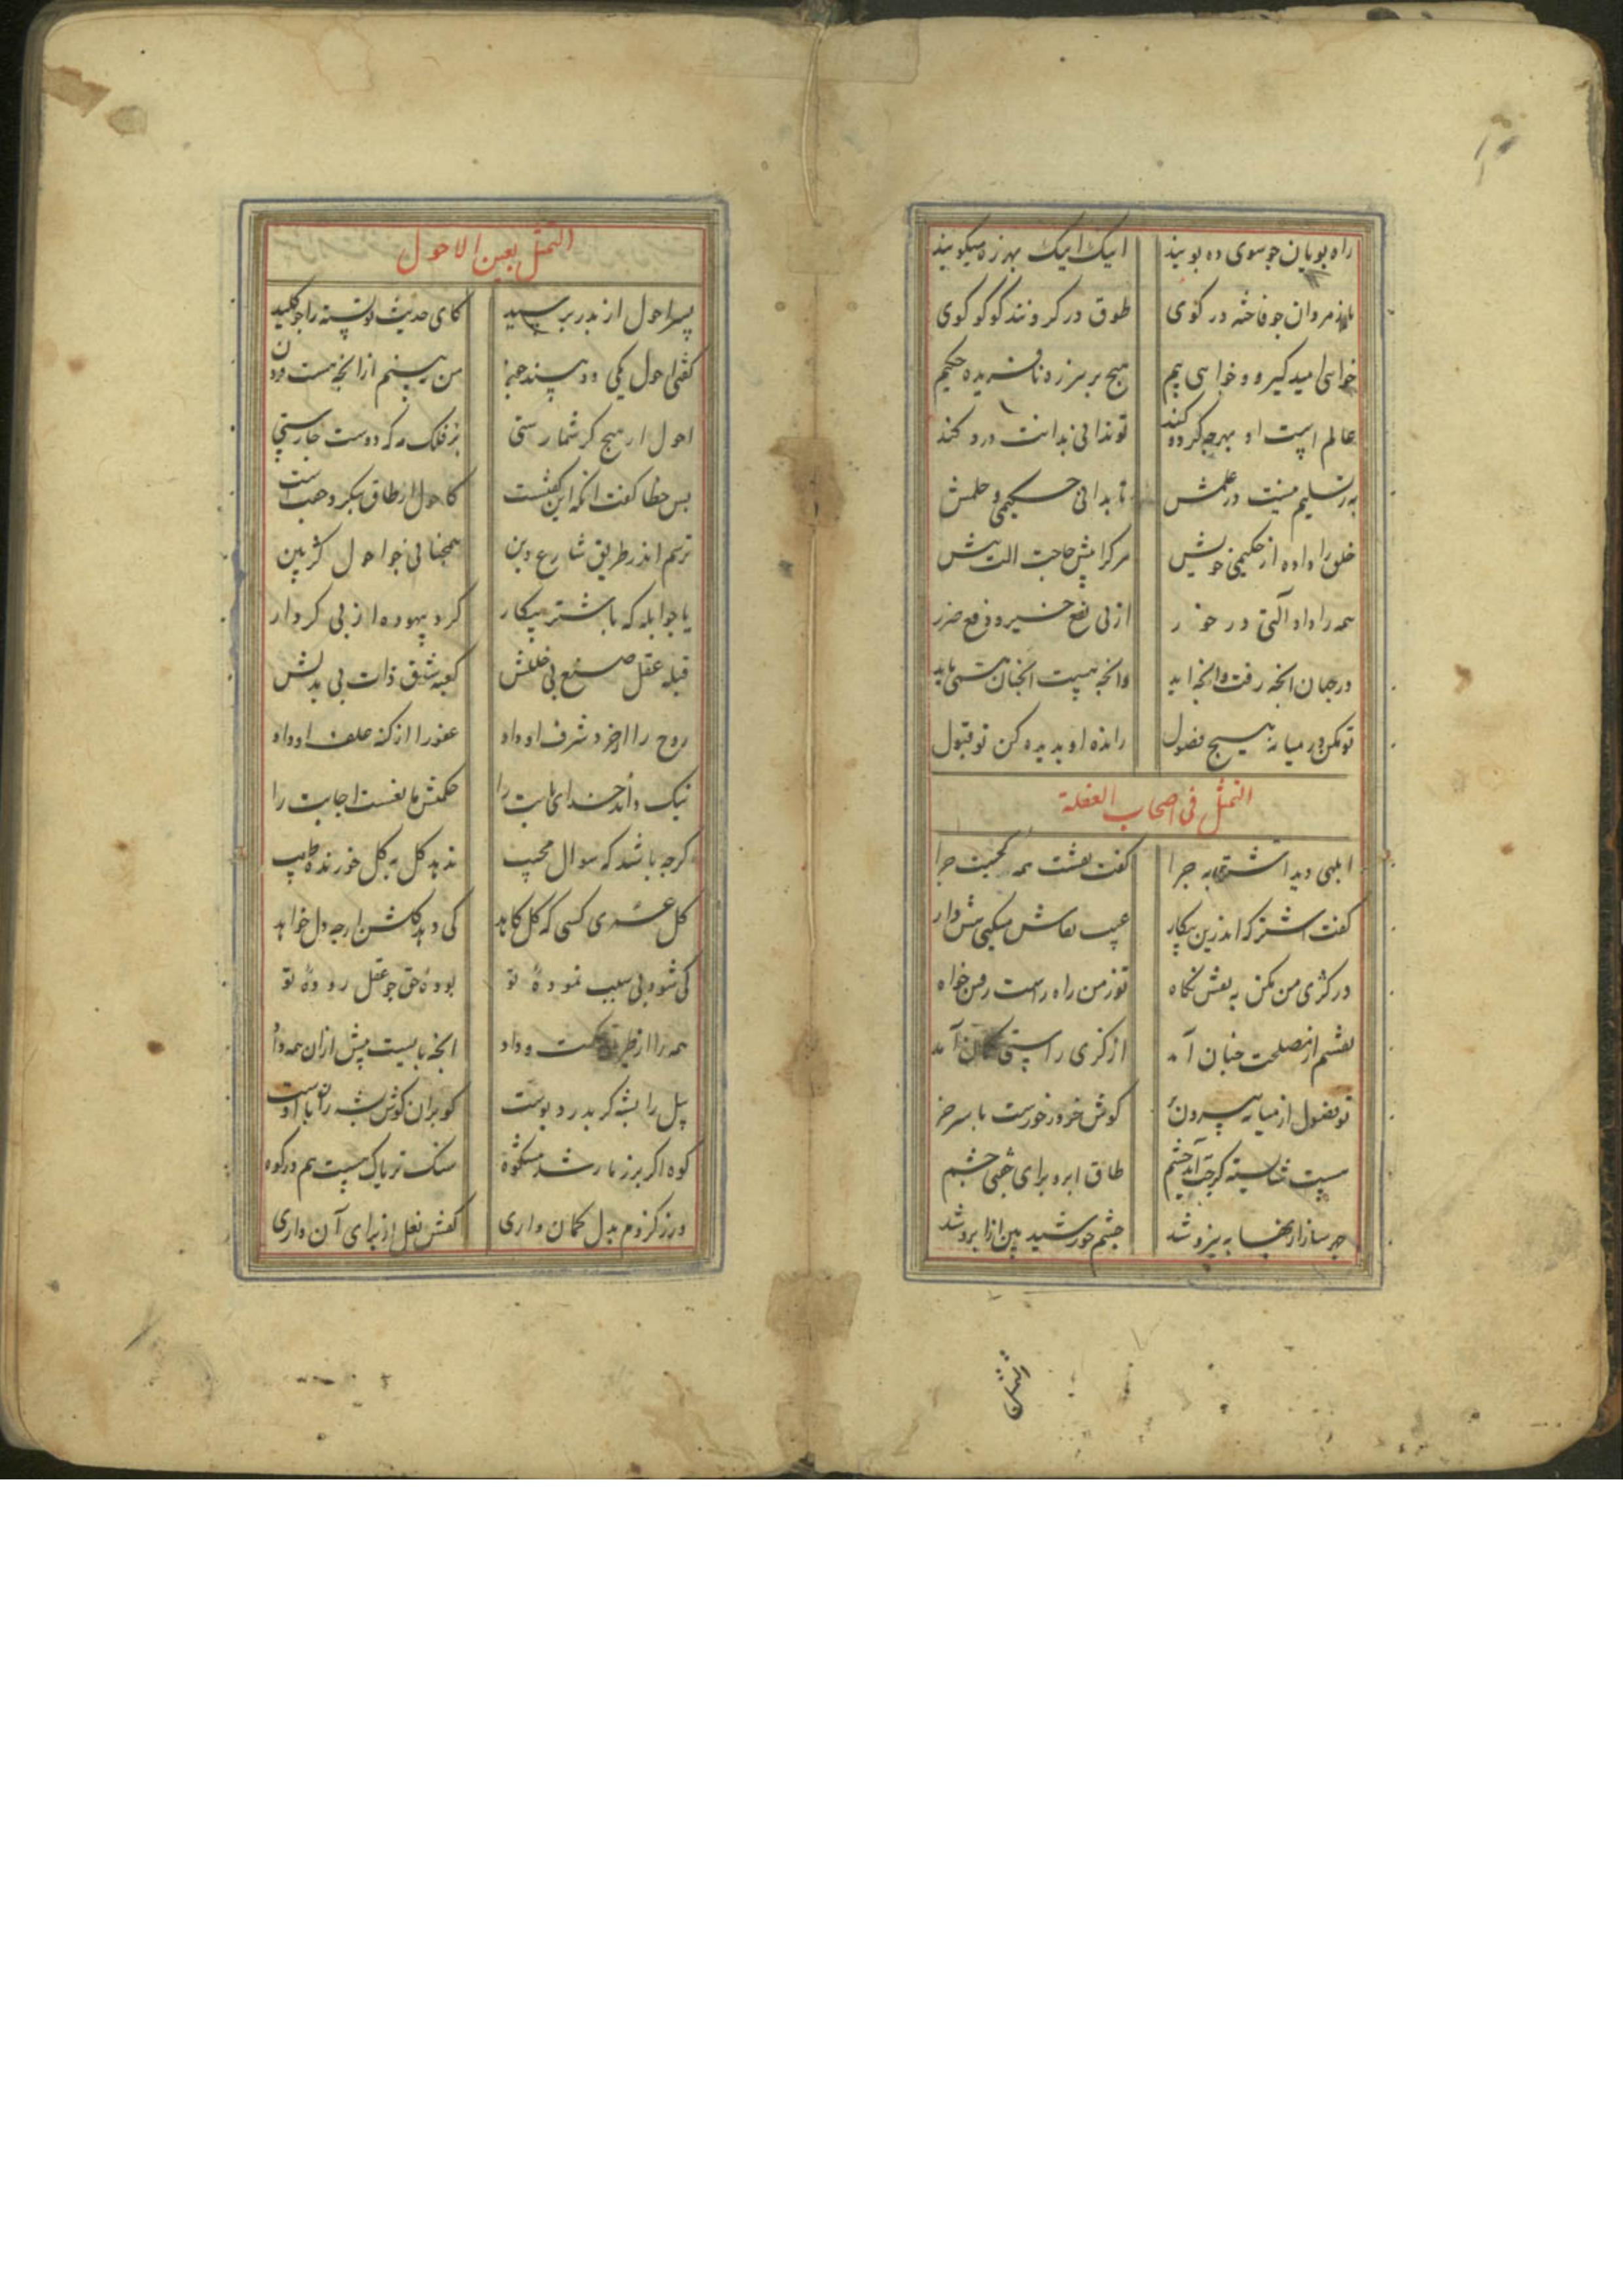 راه پویان چو سوی ده پویند اینک اینک بهرزه میگویند
باز مردان چو فاخته در کوی طوق در گردنند کوکو گوی
خواهی امید گیر و خواهی بیم هیچ بر هرزه نافریده حکیم
عالم است او بهرچه کرد و کند تو ندانی بدانت درد کند
به ز تسلیم نیست در علمش تا بدانی حکیمی و حلمش
خلق را داده از حکیمی خویش هرکرا بیش حاجت آلت بیش
همه را داد آلتی در خور از پی نفع خیر و دفع ضرر
در جهان آنچه رفت و آنچه آید وانچه هست آنچنان همی باید
تو مکن در میانه هیچ فضول رانده او بدیده کن تو قبول
التمثل فی اصحاب الغفلة
ابلهی دید اشتری به چرا گفت نقشت همه کجست چرا
گفت اشتر که اندرین پیکار عیب نقاش میکنی هش دار
در کژی من مکن به نقش نگاه تو ز من راه راست رفتن خواه
نقشم از مصلحت چنان آمد از کژی راستی کمان آمد
تو فضول از میانه بیرون بر گوش خر درخورست با سر خر
هست شایسته گرچت آید خشم طاق ابرو برای جفتی چشم
چشم خورشید بین از ابرو شد
التمثل بعین الاحول
پسر احول از پدر پرسید کای حدیث تو بسته را چو کلید
گفتی احول یکی دو بیند چون من نبینم از آنچه هست فزون
احول ار هیچ کژ شمارستی بر فلک مه که دوست چارستی
پس خطا گفت آنکه این گفتست کاحول ار طاق بنگرد جفتست
ترسم اندر طریق شارع دین همچنانی چو احول کژ بین
یا چو ابله که با شتر پیکار کرد بیهوده از پی کردار
قبله عقل صنع بی خللش کعبه شوق ذات بی بدلش
روح را از خرد شرف او داد عفو را از گنه علف او داد
نیک داند خدای انابت را حکمتش مانعست اجابت را
گرچه باشد گه سوال مجیب ندهد گل به گل خورنده طبیب
گل خری کسی که گل کاهد کی دهد گلش ارچه دل خواهد
کی شود بی سبب نموده تو بوده حق چو عقل روده تو
همه را از طریق حکمت و داد آنچه بایست بیش از آن همه داد
پیل را پشه گر بدرد پوست گو بران گوش پشه ران با اوست
کوه اگر پر ز مار شد مشکوه سنگ تریاک هست هم در کوه
ور ز کژدم بدل گمان داری کفش و نعل از برای آن داری